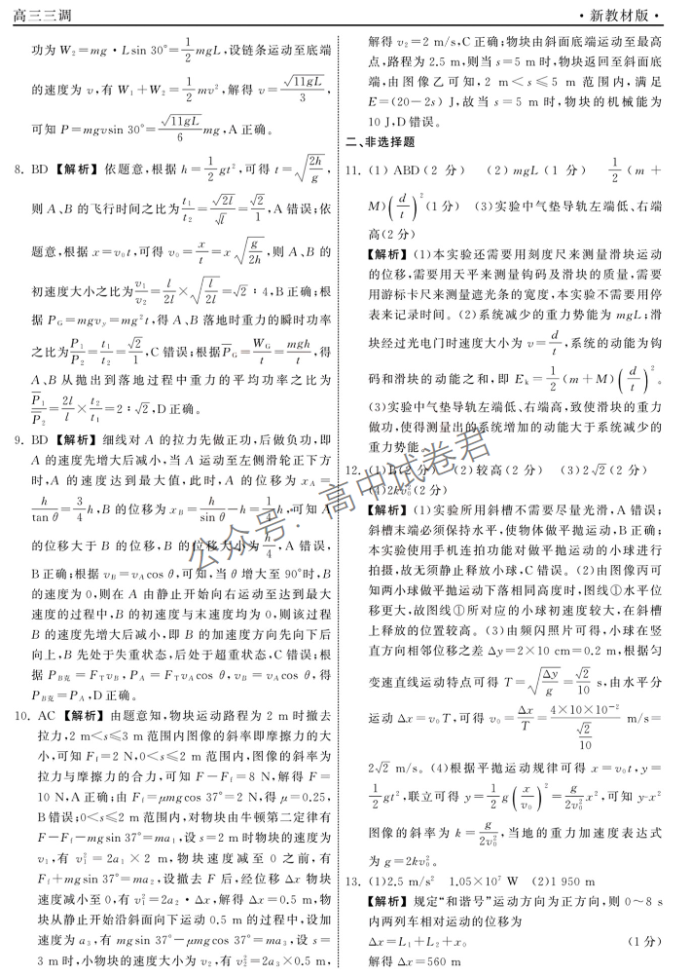 高三三调
·新教材版·
功为 W₂=mg·Lsin 30°=1/2 mgL,设链条运动至底端
的速度为 v,有 W₁+W₂=1/2 mv²,解得 v=√(11gL)/3,
可知 P=mgvsin 30°=√(11gL)/6 mg,A 正确。
8. BD 【解析】依题意,根据 h=1/2 gt²,可得 t=√(2h/g),
则 A、B 的飞行时间之比为 t₁/t₂=√(2l)/√l=√2/1,A 错误;依
题意,根据 x=v₀t,可得 v₀=x/t=x√(g/2h),则 A、B 的
初速度大小之比为 v₁/v₂=l/2l×√(l/2l)=√2∶4,B 正确;根
据 P_G=mgv_y=mg²t,得 A、B 落地时重力的瞬时功率
之比为 P₁/P₂=t₁/t₂=√2/1,C 错误;根据 P̄_G=W_G/t=mgh/t,得
A、B 从抛出到落地过程中重力的平均功率之比为
P̄₁/P̄₂=2l/l×t₂/t₁=2∶√2,D 正确。
9. BD 【解析】细线对 A 的拉力先做正功,后做负功,即
A 的速度先增大后减小,当 A 运动至左侧滑轮正下方
时,A 的速度达到最大值,此时,A 的位移为 x_A=
h/tan θ=3/4 h,B 的位移为 x_B=h/sin θ−h=1/4 h,可知 A
的位移大于 B 的位移,B 的位移大小为 h/4,A 错误,
B 正确;根据 v_B=v_A cos θ,可知,当 θ 增大至 90°时,B
的速度为 0,则在 A 由静止开始向右运动至达到最大
速度的过程中,B 的初速度与末速度均为 0,则该过程
B 的速度先增大后减小,即 B 的加速度方向先向下后
向上,B 先处于失重状态,后处于超重状态,C 错误;根
据 P_B克=F_T v_B,P_A=F_T v_A cos θ,v_B=v_A cos θ,得
P_B克=P_A,D 正确。
10. AC 【解析】由题意知,物块运动路程为 2 m 时撤去
拉力,2 m<s≤3 m 范围内图像的斜率即摩擦力的大
小,可知 F_f=2 N,0<s≤2 m 范围内,图像的斜率为
拉力与摩擦力的合力,可知 F−F_f=8 N,解得 F=
10 N,A 正确;由 F_f=μmgcos 37°=2 N,得 μ=0.25,
B 错误;0<s≤2 m 范围内,对物块由牛顿第二定律有
F−F_f−mgsin 37°=ma₁,设 s=2 m 时物块的速度为
v₁,有 v₁²=2a₁×2 m,物块速度减至 0 之前,有
F_f+mgsin 37°=ma₂,设撤去 F 后,经位移 Δx 物块
速度减小至 0,有 v₁²=2a₂·Δx,解得 Δx=0.5 m,物
块从静止开始沿斜面向下运动 0.5 m 的过程中,设加
速度为 a₃,有 mgsin 37°−μmgcos 37°=ma₃,设 s=
3 m 时,小物块的速度大小为 v₂,有 v₂²=2a₃×0.5 m,
解得 v₂=2 m/s,C 正确;物块由斜面底端运动至最高
点,路程为 2.5 m,则当 s=5 m 时,物块返回至斜面底
端,由图像乙可知,2 m<s≤5 m 范围内,满足
E=(20−2s) J,故当 s=5 m 时,物块的机械能为
10 J,D 错误。
二、非选择题
11. (1) ABD(2 分) (2) mgL(1 分) 1/2(m+
M)(d/t)²(1 分) (3)实验中气垫导轨左端低、右端
高(2 分)
【解析】(1)本实验还需要用刻度尺来测量滑块运动
的位移,需要用天平来测量钩码及滑块的质量,需要
用游标卡尺来测量遮光条的宽度,本实验不需要用停
表来记录时间。(2)系统减少的重力势能为 mgL;滑
块经过光电门时速度大小为 v=d/t,系统的动能为钩
码和滑块的动能之和,即 E_k=1/2(m+M)(d/t)²。
(3)实验中气垫导轨左端低、右端高,致使滑块的重力
做功,使得测量出的系统增加的动能大于系统减少的
重力势能。
12. (1)B(2 分) (2)较高(2 分) (3)2√2(2 分)
(4)2kv₀²(2 分)
【解析】(1)实验所用斜槽不需要尽量光滑,A 错误;
斜槽末端必须保持水平,使物体做平抛运动,B 正确;
本实验使用手机连拍功能对做平抛运动的小球进行
拍摄,故无须静止释放小球,C 错误。(2)由图像丙可
知两小球做平抛运动下落相同高度时,图线①水平位
移更大,故图线①所对应的小球初速度较大,在斜槽
上释放的位置较高。(3)由频闪照片可得,小球在竖
直方向相邻位移之差 Δy=2×10 cm=0.2 m,根据匀
变速直线运动特点可得 T=√(Δy/g)=√2/10 s,由水平分
运动 Δx=v₀T,可得 v₀=Δx/T=(4×10×10⁻²)/(√2/10) m/s=
2√2 m/s。(4)根据平抛运动规律可得 x=v₀t,y=
1/2 gt²,联立可得 y=1/2 g(x/v₀)²=g/2v₀² x²,可知 y-x²
图像的斜率为 k=g/2v₀²,当地的重力加速度表达式
为 g=2kv₀²。
13. (1)2.5 m/s² 1.05×10⁷ W (2)1 950 m
【解析】规定“和谐号”运动方向为正方向,则 0~8 s
内两列车相对运动的位移为
Δx=L₁+L₂+x₀ (1 分)
解得 Δx=560 m
公众号:高中试卷君